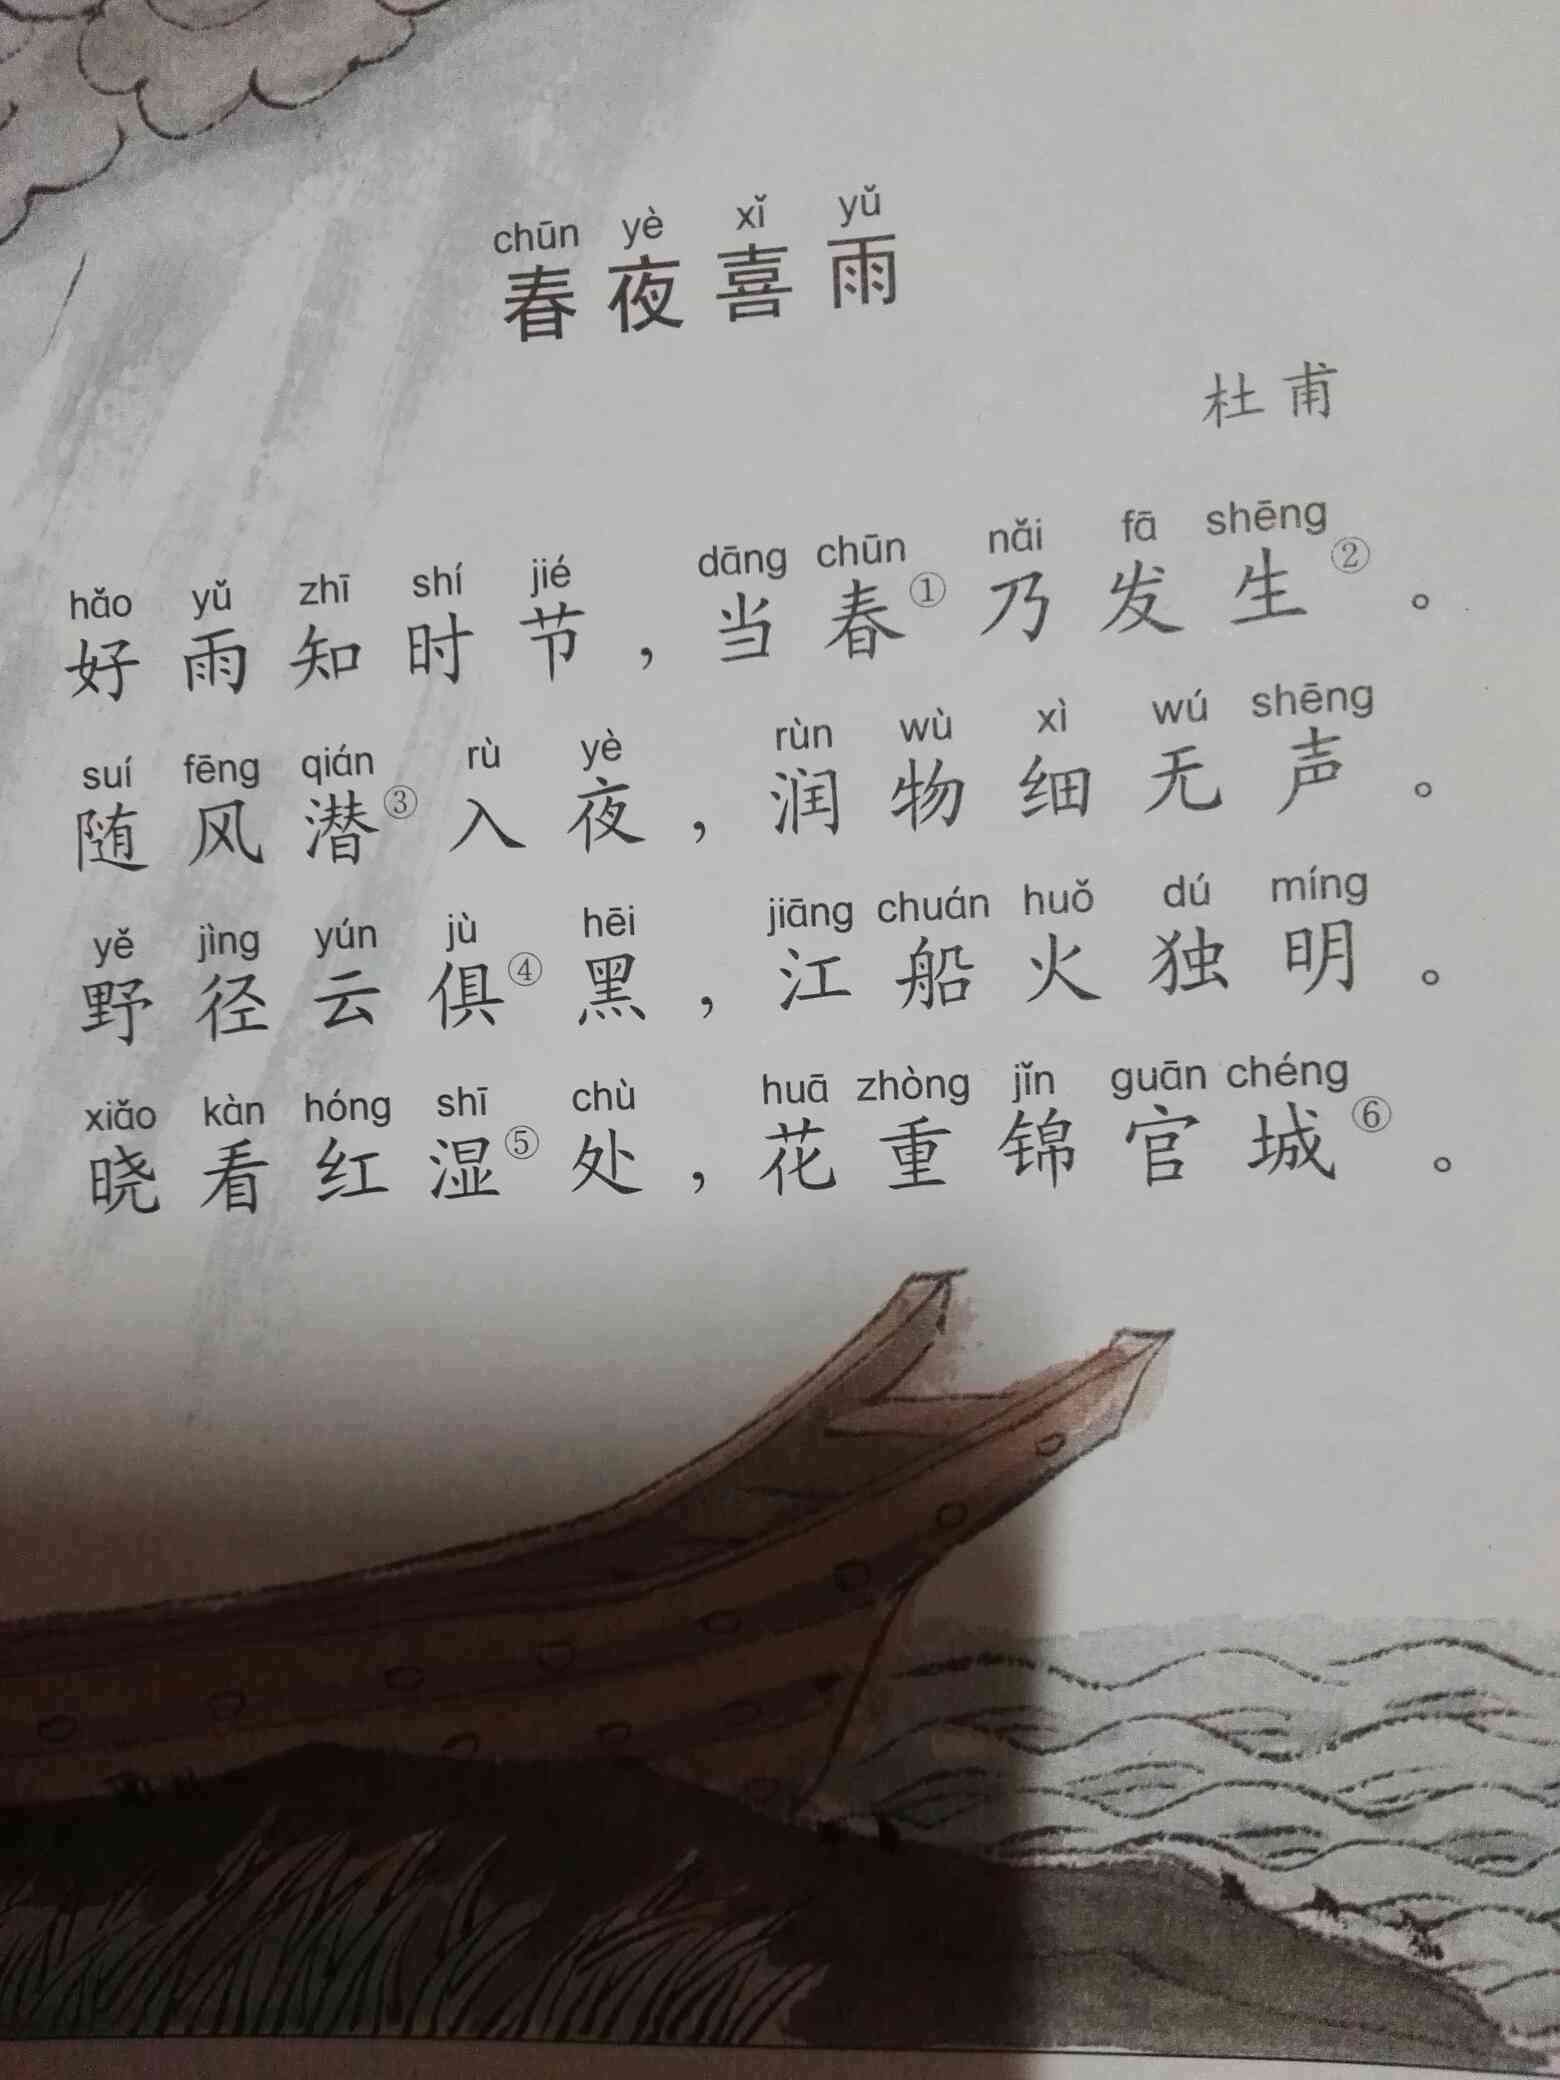 chūn yè xǐ yǔ
春夜喜雨
杜甫
hǎo yǔ zhī shí jié dāng chūn nǎi fā shēng
好雨知时节，当春①乃发生②。
suí fēng qián rù yè rùn wù xì wú shēng
随风潜③入夜，润物细无声。
yě jìng yún jù hēi jiāng chuán huǒ dú míng
野径云俱④黑，江船火独明。
xiǎo kàn hóng shī chù huā zhòng jǐn guān chéng
晓看红湿⑤处，花重锦官城⑥。